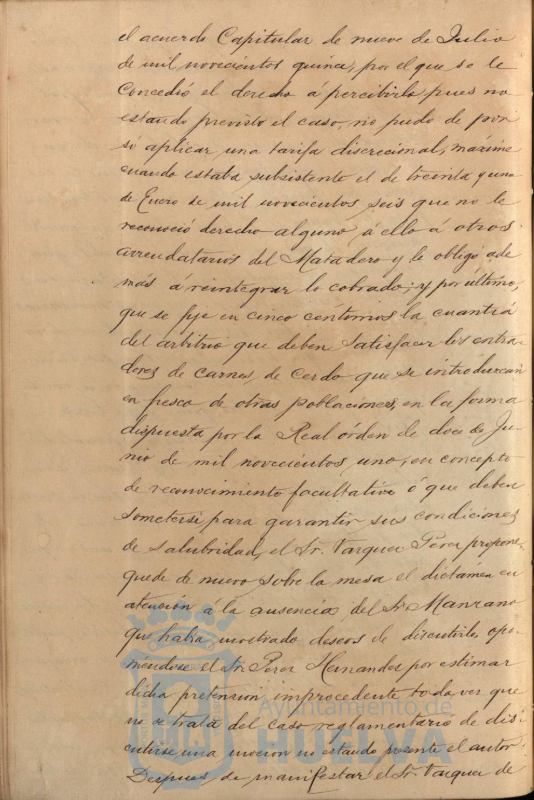 el acuerdo Capitular de nueve de Julio
de mil novecientos quince, por el que se le
concedió el derecho á percibirlo, pues no
estando previsto el caso, no pudo de por
sí aplicar una tarifa discrecional, máxime
cuando estaba subsistente el de treinta y uno
de Enero de mil novecientos seis que no le
reconoció derecho alguno á ello á otros
arrendatarios del Matadero y le obligó ade
más á reintegrar lo cobrado; y por último,
que se fije en cinco céntimos la cuantía
del arbitrio que deben satisfacer los entra-
dores de carnes de cerdo que se introduzcan
en fresco de otras poblaciones, en la forma
dispuesta por la Real órden de doce de Ju-
nio de mil novecientos uno, en concepto
de reconocimiento facultativo á que deben
someterse para garantir sus condiciones
de salubridad, el Sr. Vazquez Perez propone
quede de nuevo sobre la mesa el dictámen en
atención á la ausencia del Sr. Manzano
que había mostrado deseos de discutirlo, opo-
niéndose el Sr. Perez Hernandez por estimar
dicha pretension improcedente toda vez que
no se trata del caso reglamentario de dis-
cutirse una mocion no estando presente el autor.
Despues de manifestar el Sr. Vazquez de
Ayuntamiento de
HUELVA